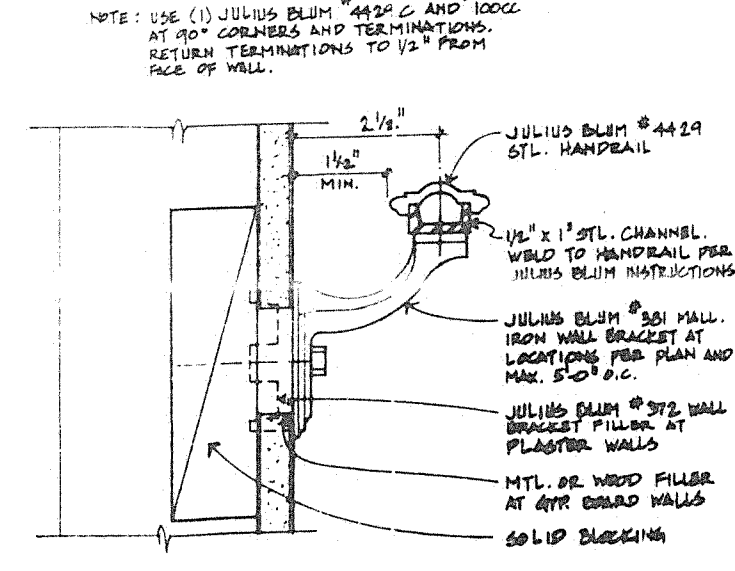 NOTE: USE (1) JULIUS BLUM #4429 C AND 100CC
AT 90° CORNERS AND TERMINATIONS.
RETURN TERMINATIONS TO 1/2" FROM
FACE OF WALL.
2 1/2"
1 1/2"
MIN.
JULIUS BLUM #4429
STL. HANDRAIL
1/2" X 1" STL. CHANNEL.
WELD TO HANDRAIL PER
JULIUS BLUM INSTRUCTIONS
JULIUS BLUM #381 MALL.
IRON WALL BRACKET AT
LOCATIONS PER PLAN AND
MAX. 5-0" O.C.
JULIUS BLUM #372 WALL
BRACKET FILLER AT
PLASTER WALLS
MTL. OR WOOD FILLER
AT GYP. BOARD WALLS
SOLID BLOCKING